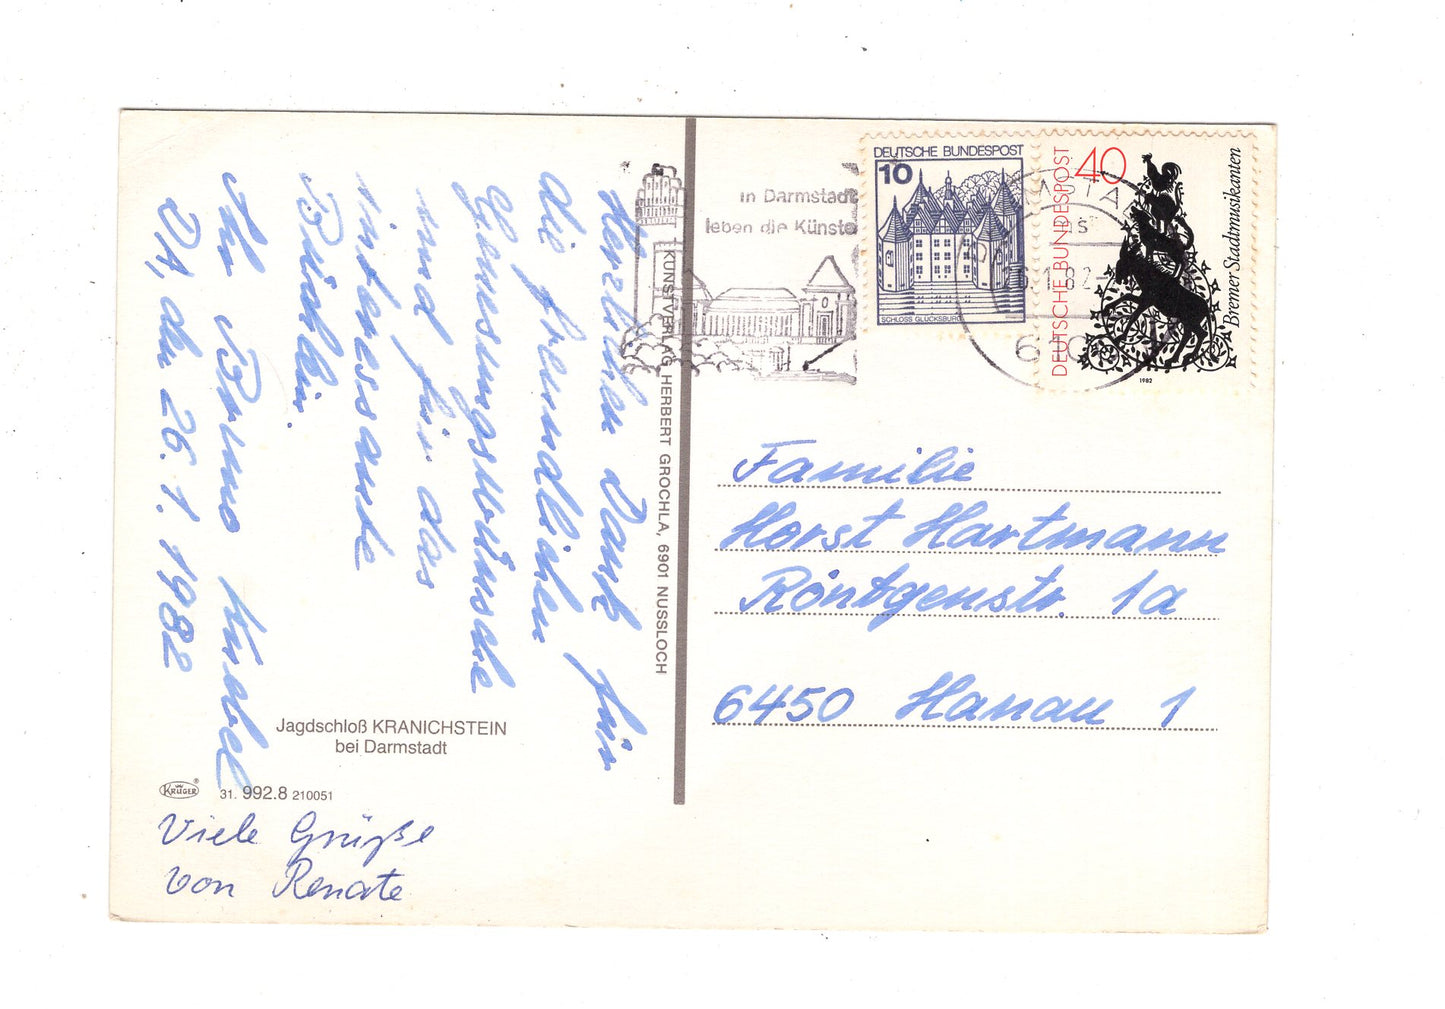 Herzlichen Dank für
die freundlichen
Genesungswünsche
und für das
interessante
Büchlein.
Ihr Bruno Knabel
DA, den 26.1.1982
Viele Grüße
von Renate
Jagdschloß KRANICHSTEIN
bei Darmstadt
KRÜGER
31. 992.8 210051
KUNSTVERLAG HERBERT GROCHLA, 6901 NUSSLOCH
in Darmstadt
leben die Künste
DEUTSCHE BUNDESPOST
10
SCHLOSS GLÜCKSBURG
DEUTSCHE BUNDESPOST
40
Bremer Stadtmusikanten
1982
26.1.82
Familie
Horst Hartmann
Röntgenstr. 1a
6450 Hanau 1